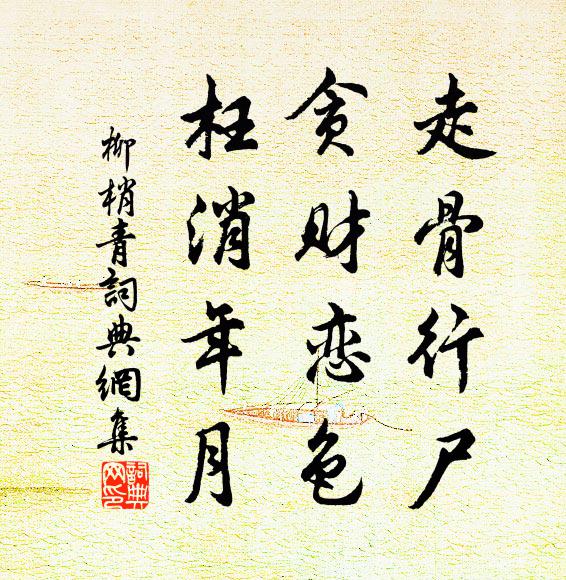 走骨行尸
贪财恋色
枉消年月
柳梢青詞典網集
詞典
网印